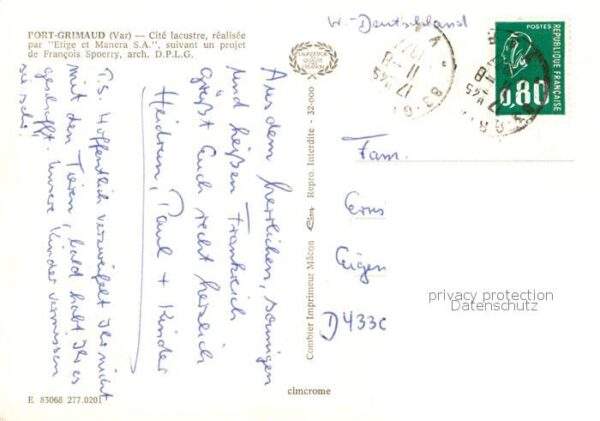 PORT-GRIMAUD (Var) — Cité lacustre, réalisée
par "Etige et Manera S.A.", suivant un projet
de François Spoerry, arch. D.P.L.G.
Aus dem herrlichen, sonnigen
und heißen Frankreich
grüßt Euch recht herzlich
Heidrun, Paul + Kinder
P.S. Hoffentlich verzweifelt Ihr nicht
mit den Tieren, bald habt Ihr es
geschafft. Unsere Kinder vermissen
sie sehr.
E 83068 277.0201
Combier Imprimeur Mâcon
Repro. Interdite - 32-000
cimcrome
W.-Deutschland
POSTES
REPUBLIQUE FRANÇAISE
0,80
17 H45
11 - 8
1977
Fam.
D 433
privacy protection
Datenschutz